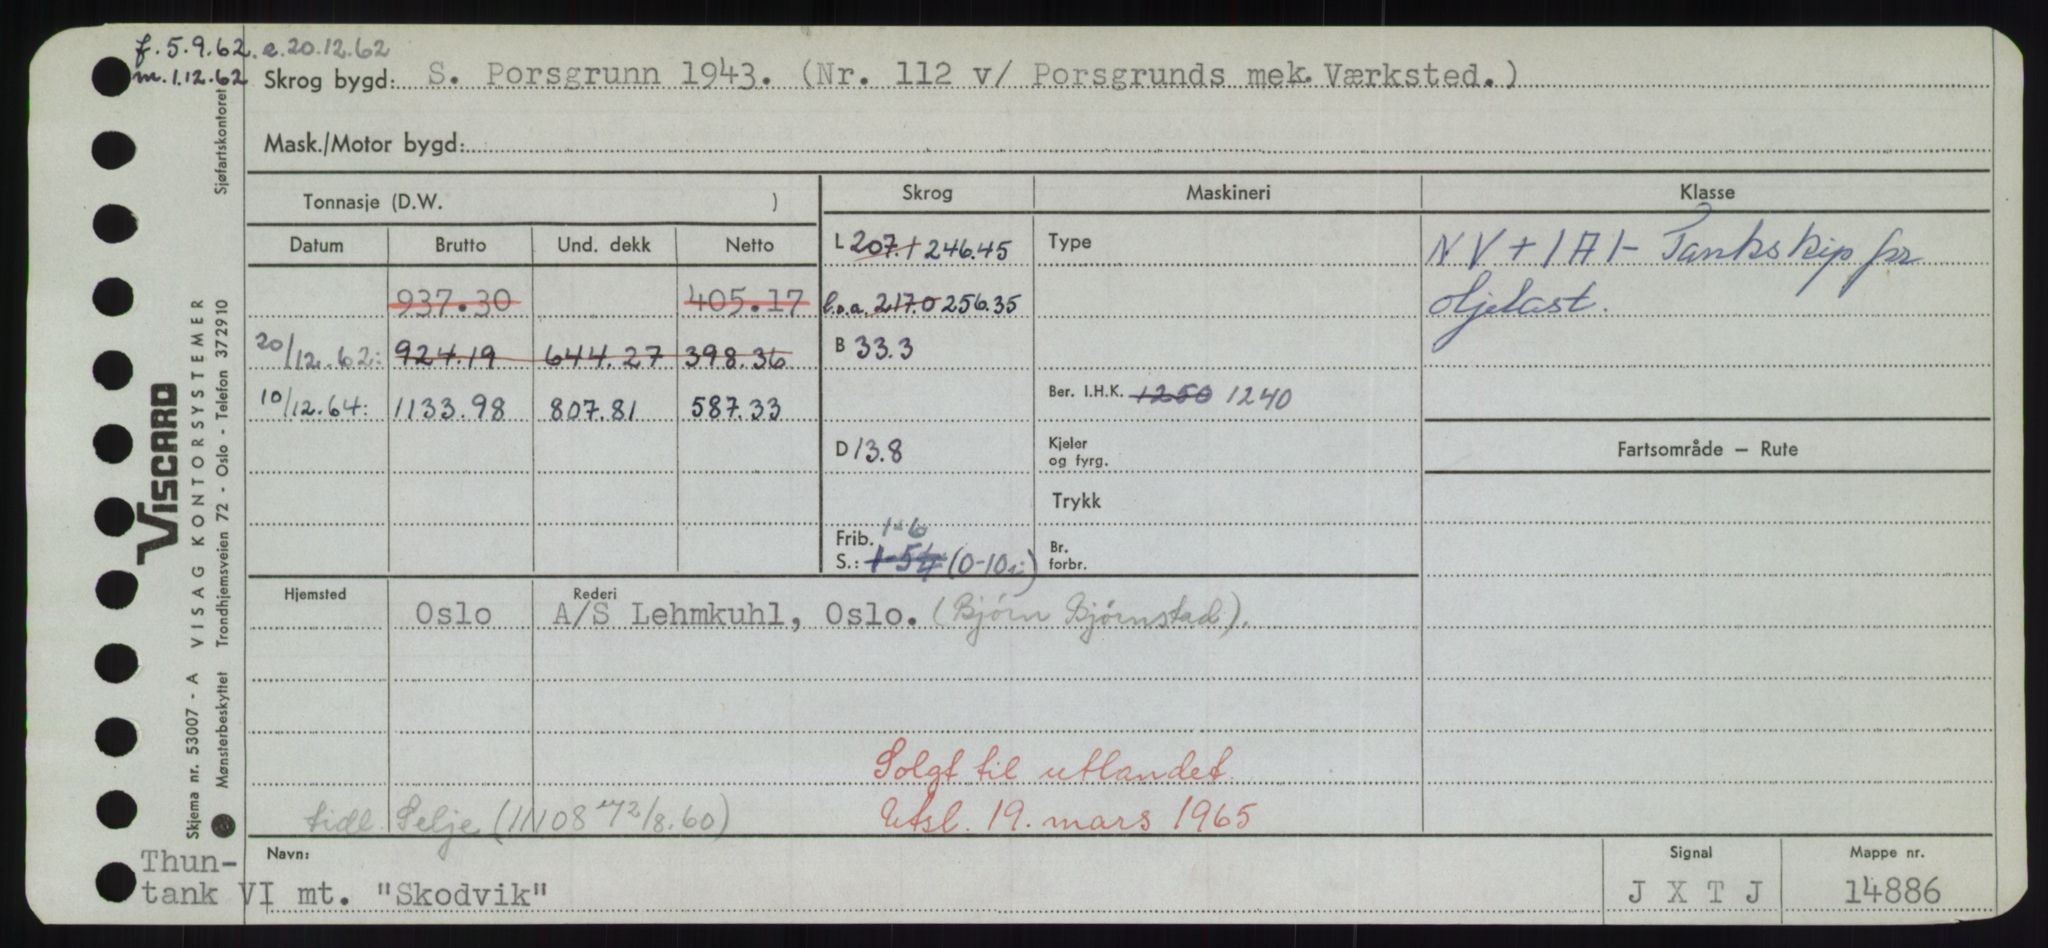 f. 5.9.62. e. 20.12.62
m. 1.12.62
Skrog bygd: S. Porsgrunn 1943. (Nr. 112 v/ Porsgrunds mek. Værksted.)
Mask./Motor bygd:
Tonnasje (D.W. )
Skrog
Maskineri
Klasse
Datum Brutto Und. dekk Netto
L 207.1 246.45
Type
NV + 1A1- Tankskip for
oljelast.
937.30 405.17
l.o.a. 217.0 256.35
20/12.62: 924.19 644.27 398.36
B 33.3
10/12.64: 1133.98 807.81 587.33
Ber. I.H.K. 1250 1240
D 13.8
Kjeler
og fyrg.
Fartsområde – Rute
Trykk
Frib. 1-6
S.: 1-5¼ (0-10)
Br.
forbr.
Hjemsted Rederi
Oslo A/S Lehmkuhl, Oslo. (Bjørn Bjørnstad).
Solgt til utlandet
Utsl. 19. mars 1965
tidl. Selje (11108 /8.60)
Navn:
Signal
Mappe nr.
Thun-
tank VI mt. "Skodvik"
J X T J
14886
VISCARD
Skjema nr. 53007 - A VISAG KONTORSYSTEMER
Mønsterbeskyttet Trondhjemsveien 72 - Oslo - Telefon 372910 Sjøfartskontoret